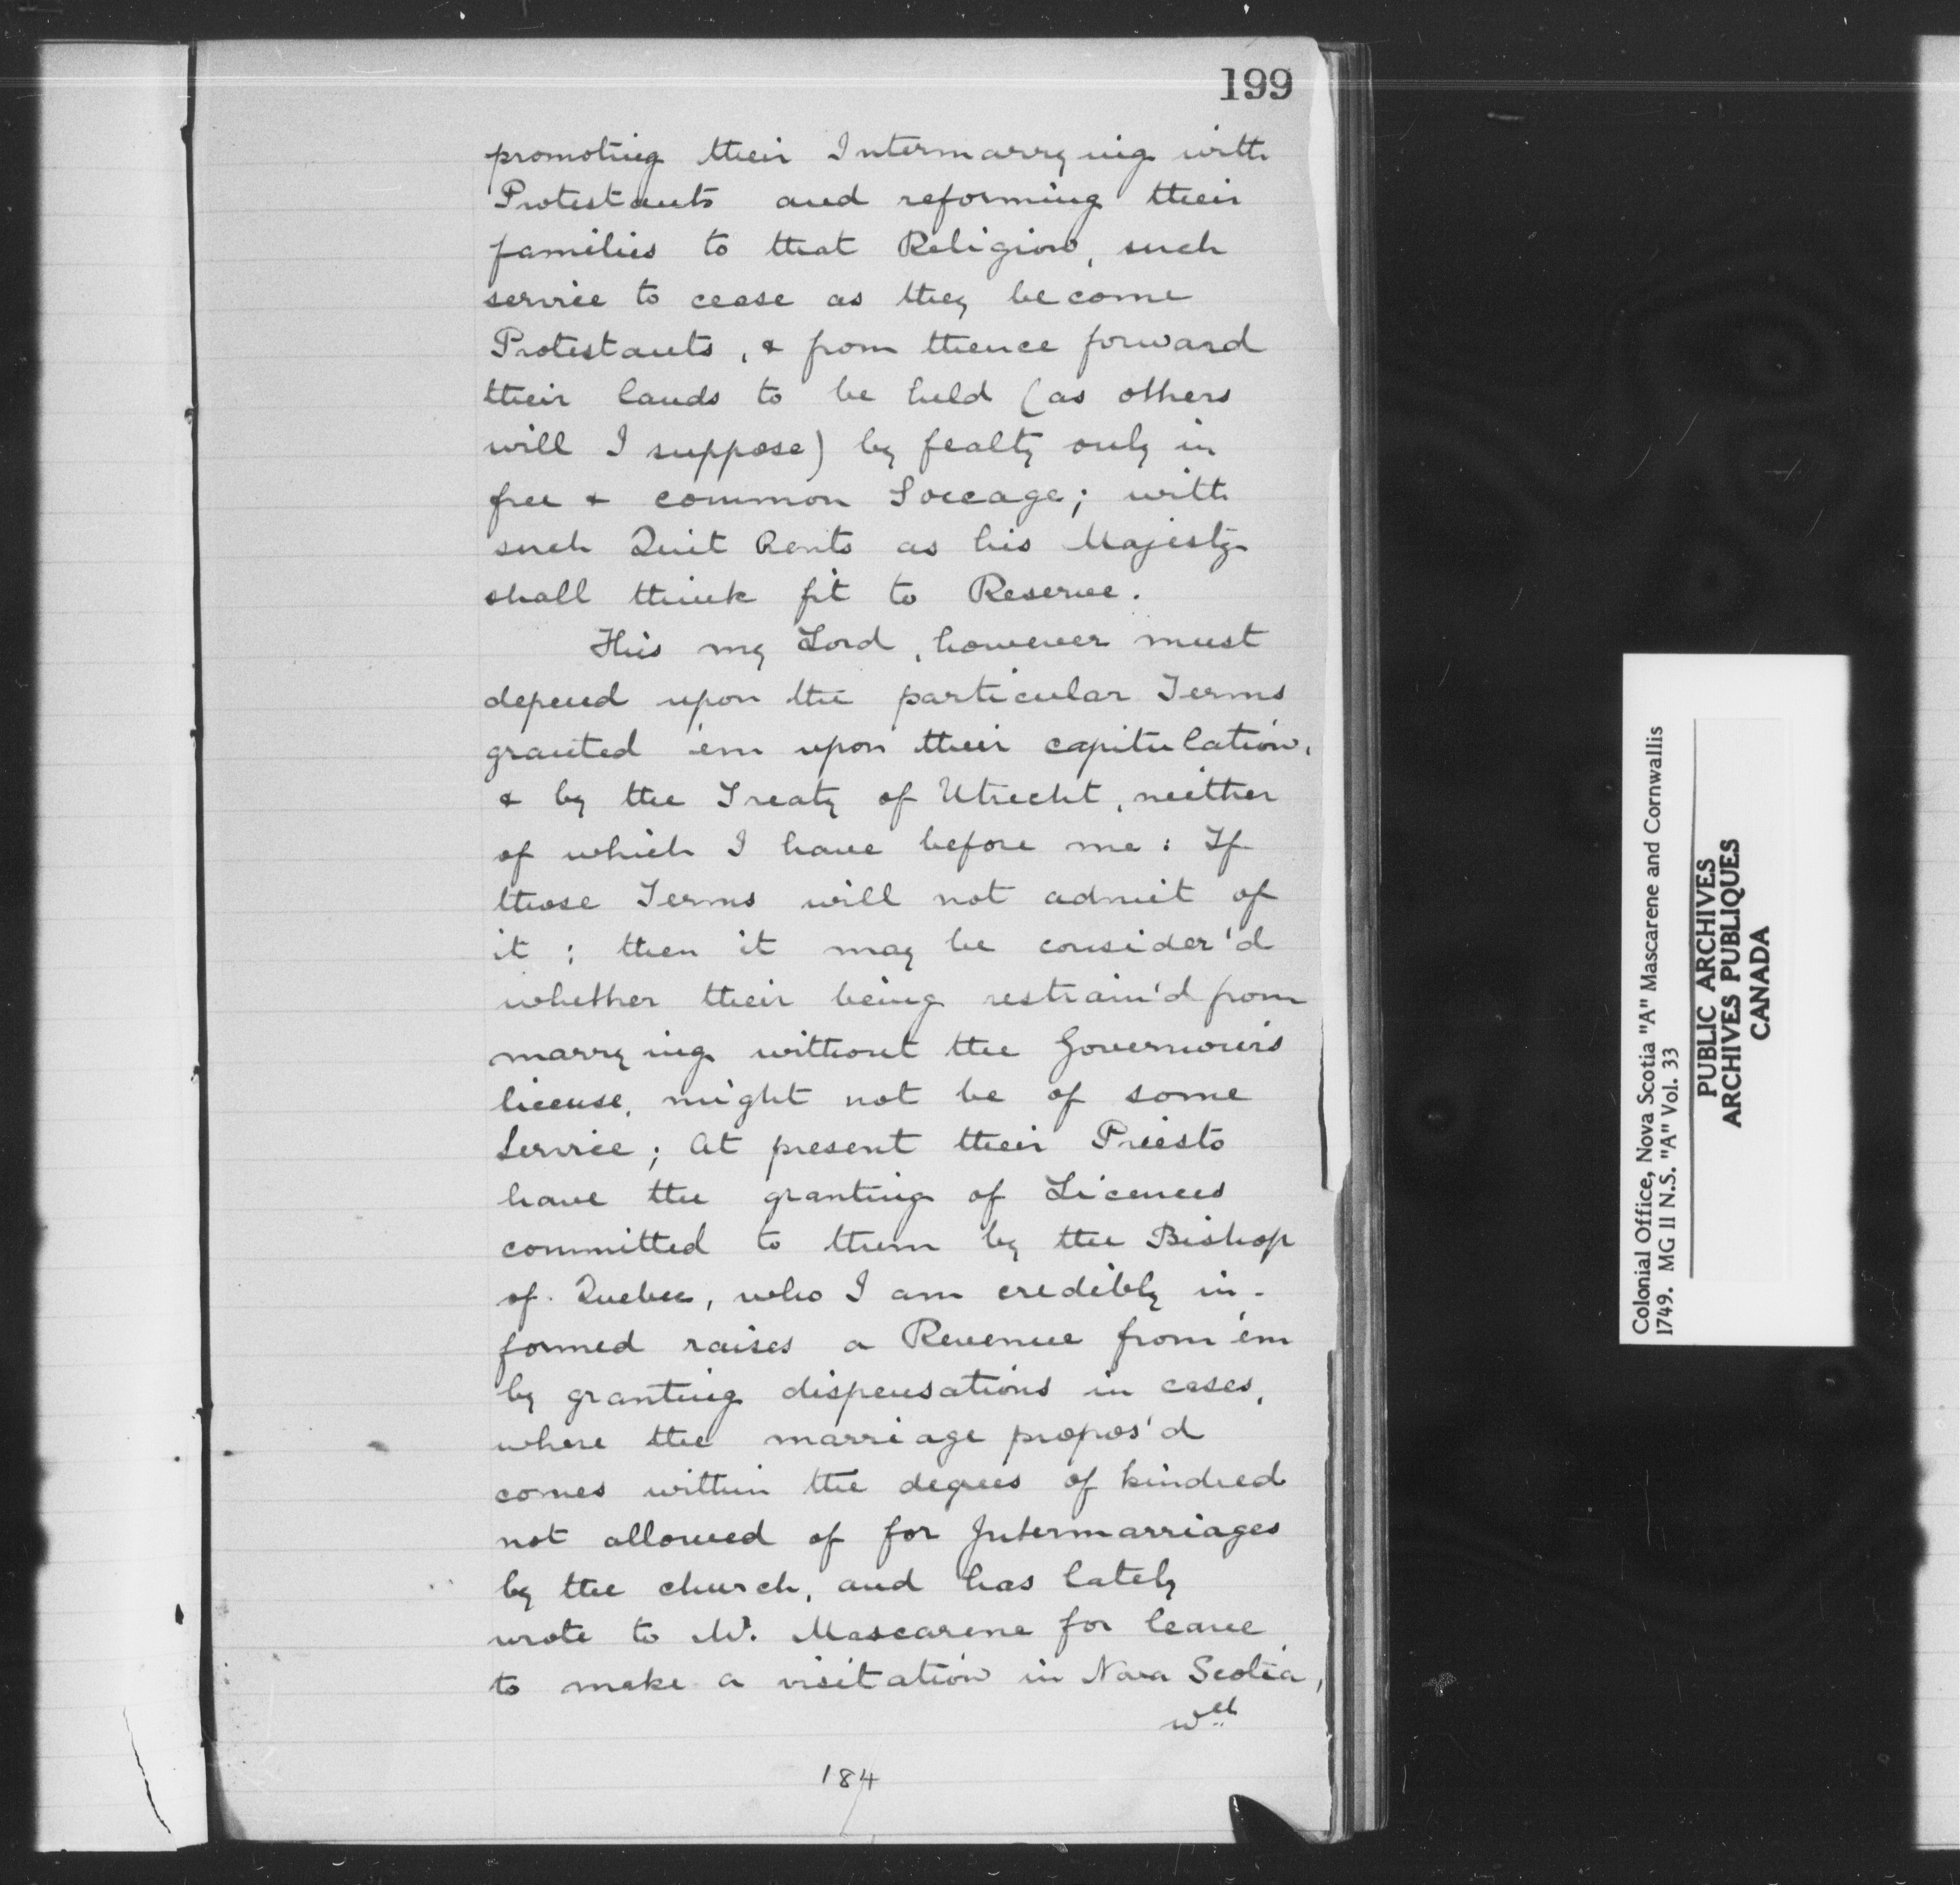 199
promoting their Intermarrying with
Protestants and reforming their
families to that Religion, such
service to cease as they become
Protestants, & from thence forward
their lands to be held (as others
will I suppose) by fealty only in
free & common Soccage; with
such Quit Rents as his Majesty
shall think fit to Reserve.
This my Lord, however must
depend upon the particular Terms
granted 'em upon their capitulation,
& by the Treaty of Utrecht, neither
of which I have before me: If
those Terms will not admit of
it; then it may be consider'd
whether their being restrain'd from
marrying without the Governour's
license, might not be of some
Service; At present their Priests
have the granting of Licences
committed to them by the Bishop
of Quebec, who I am credibly in-
formed raises a Revenue from 'em
by granting dispensations in cases,
where the marriage propos'd
comes within the degrees of kindred
not allowed of for Intermarriages
by the church, and has lately
wrote to Mr. Mascarene for leave
to make a visitation in Nova Scotia,
wch
184
Colonial Office, Nova Scotia "A" Mascarene and Cornwallis
1749. MG II N.S. "A" Vol. 33
PUBLIC ARCHIVES
ARCHIVES PUBLIQUES
CANADA